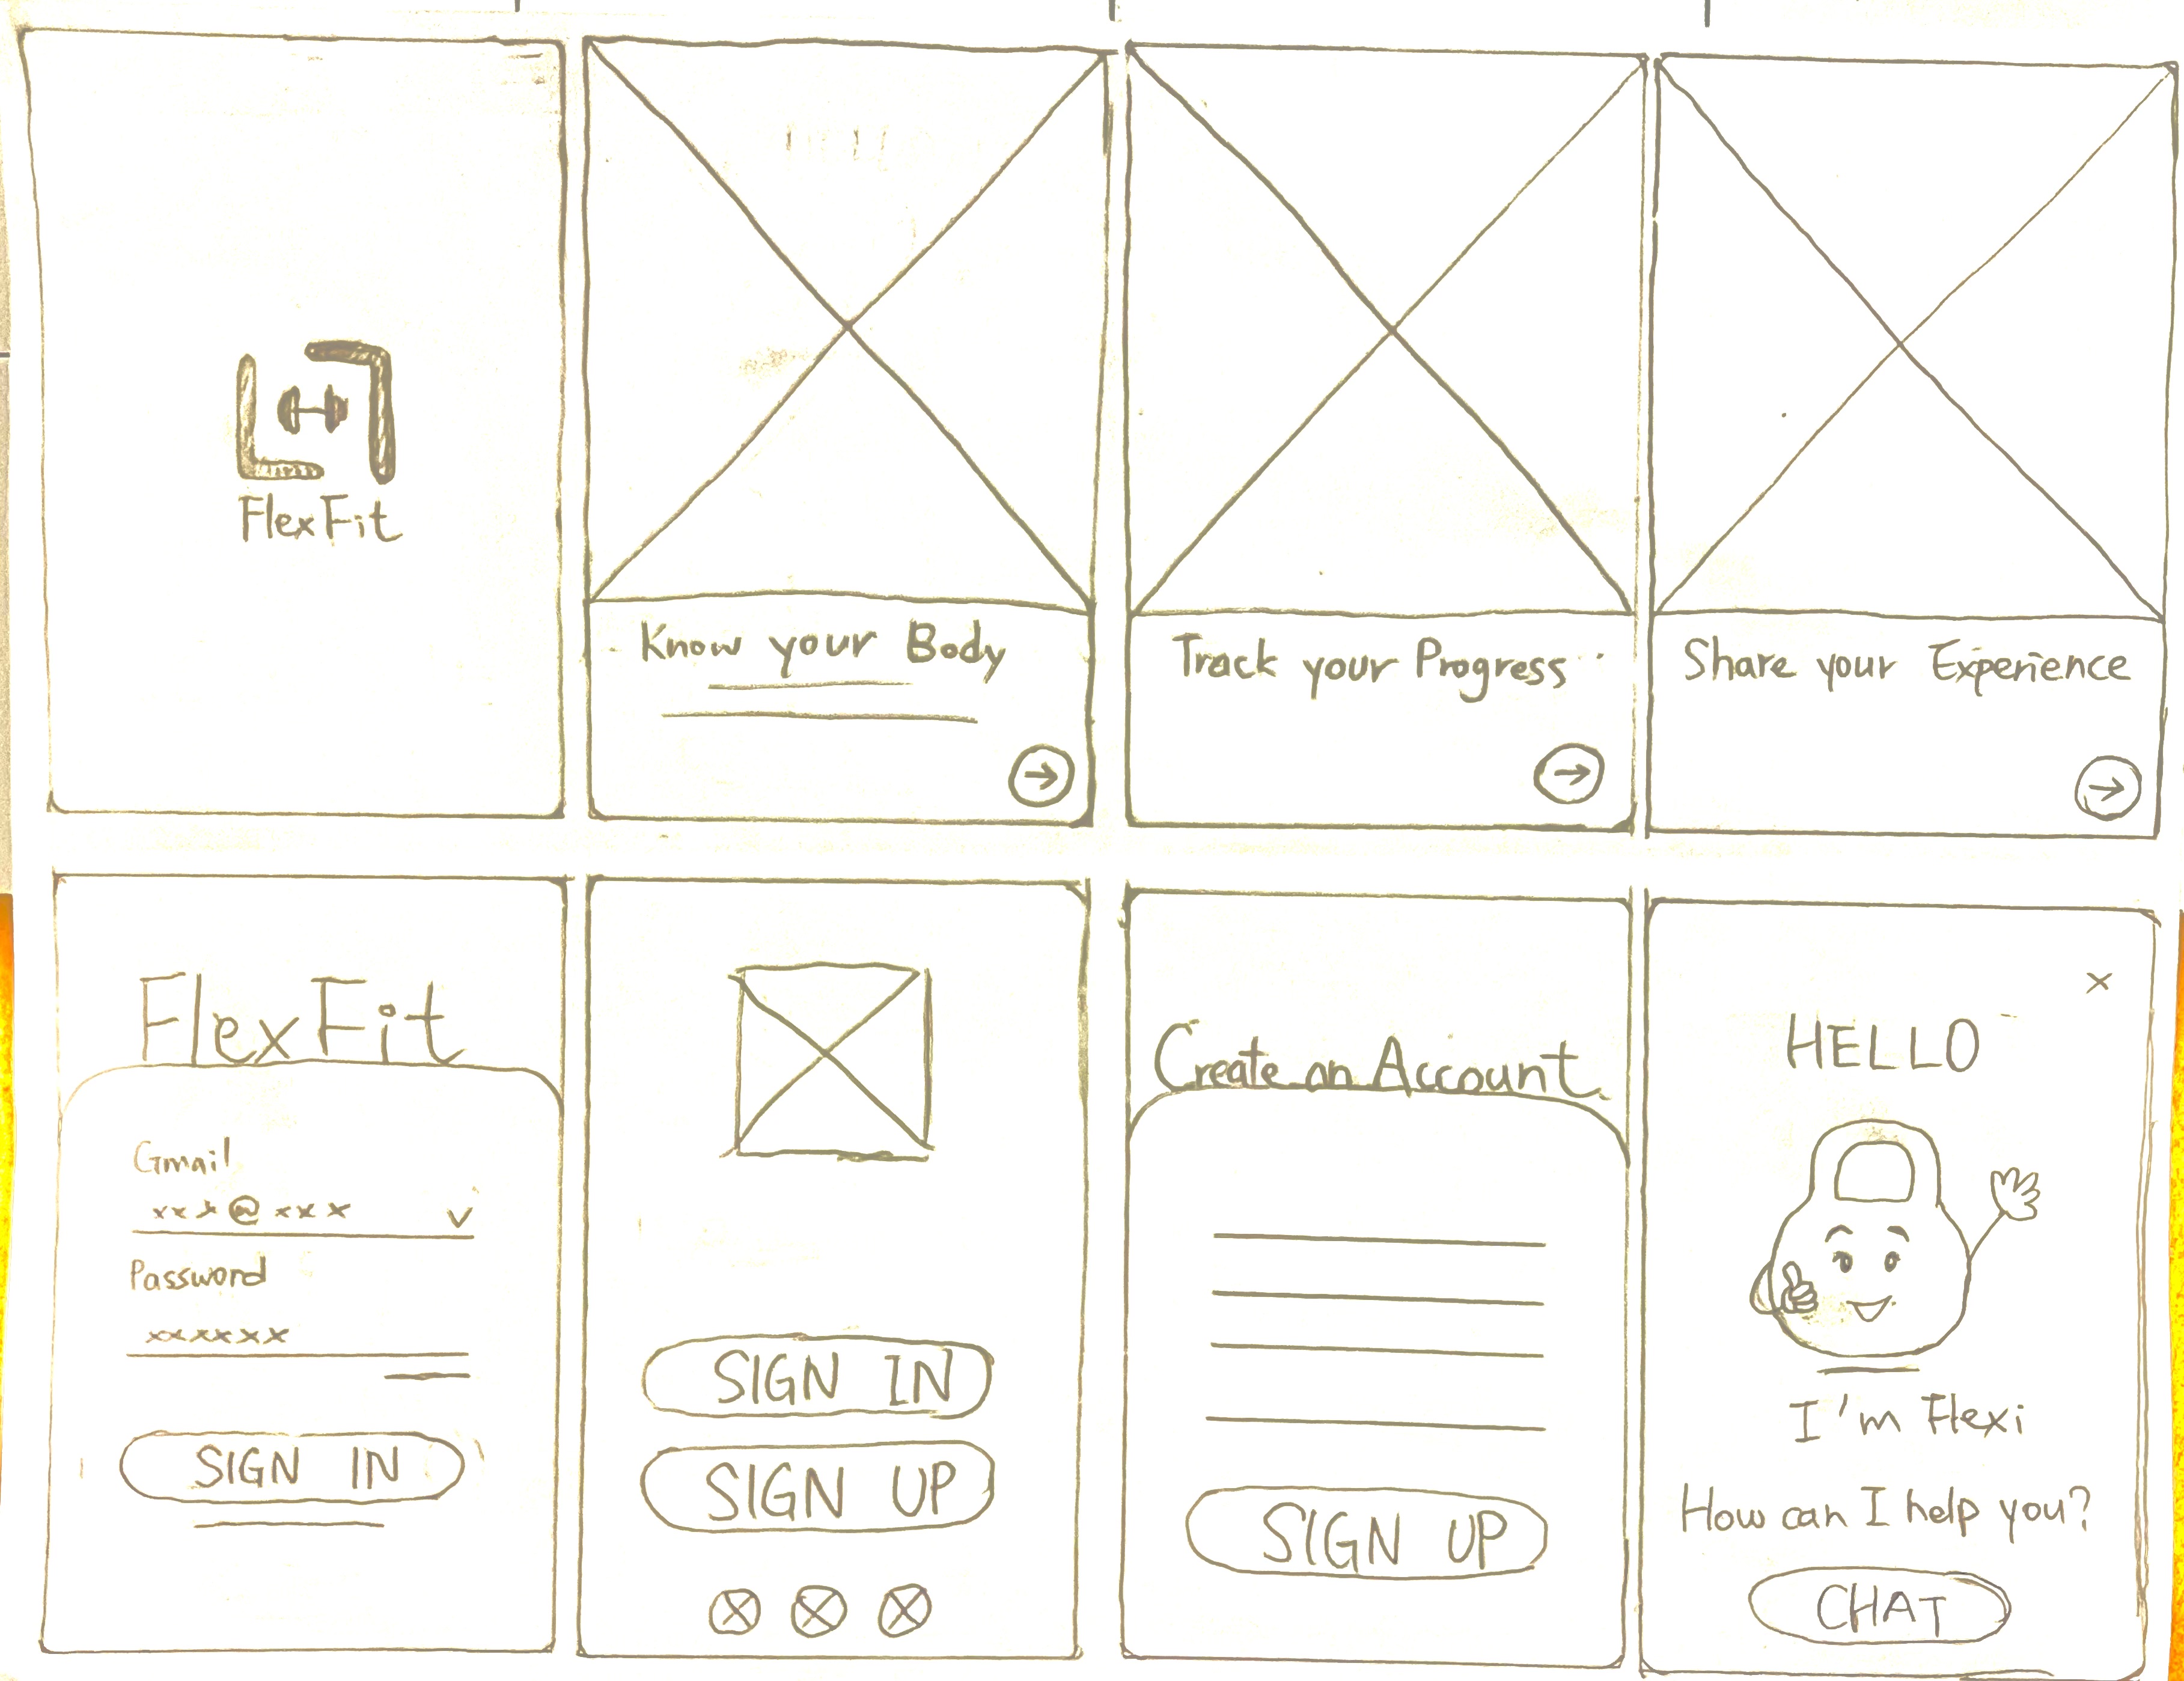 FlexFit
Know your Body
Track your Progress
Share your Experience
FlexFit
Gmail
xxx@xxx
Password
xxxxxx
SIGN IN
SIGN IN
SIGN UP
Create an Account
SIGN UP
HELLO
I'm Flexi
How can I help you?
CHAT